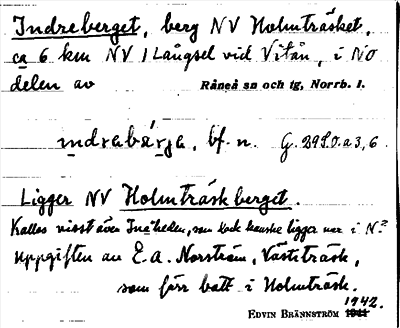 Indreberget, berg NV Holmträsket,
ca 6 km NV 1 Långsel vid Vitån, i NO
delen av Råneå sn och tg, Norrb. l.
ındrabárja, bf. n. G. 29 a 3, 6.
Ligger NV Holmträskberget.
Kallas visst även, som dock kanske ligger mer i N?
Uppgiften av E.A. Norström, Västiträsk,
som förr bott i Holmträsk.
1942.
Edvin Brännström 1941